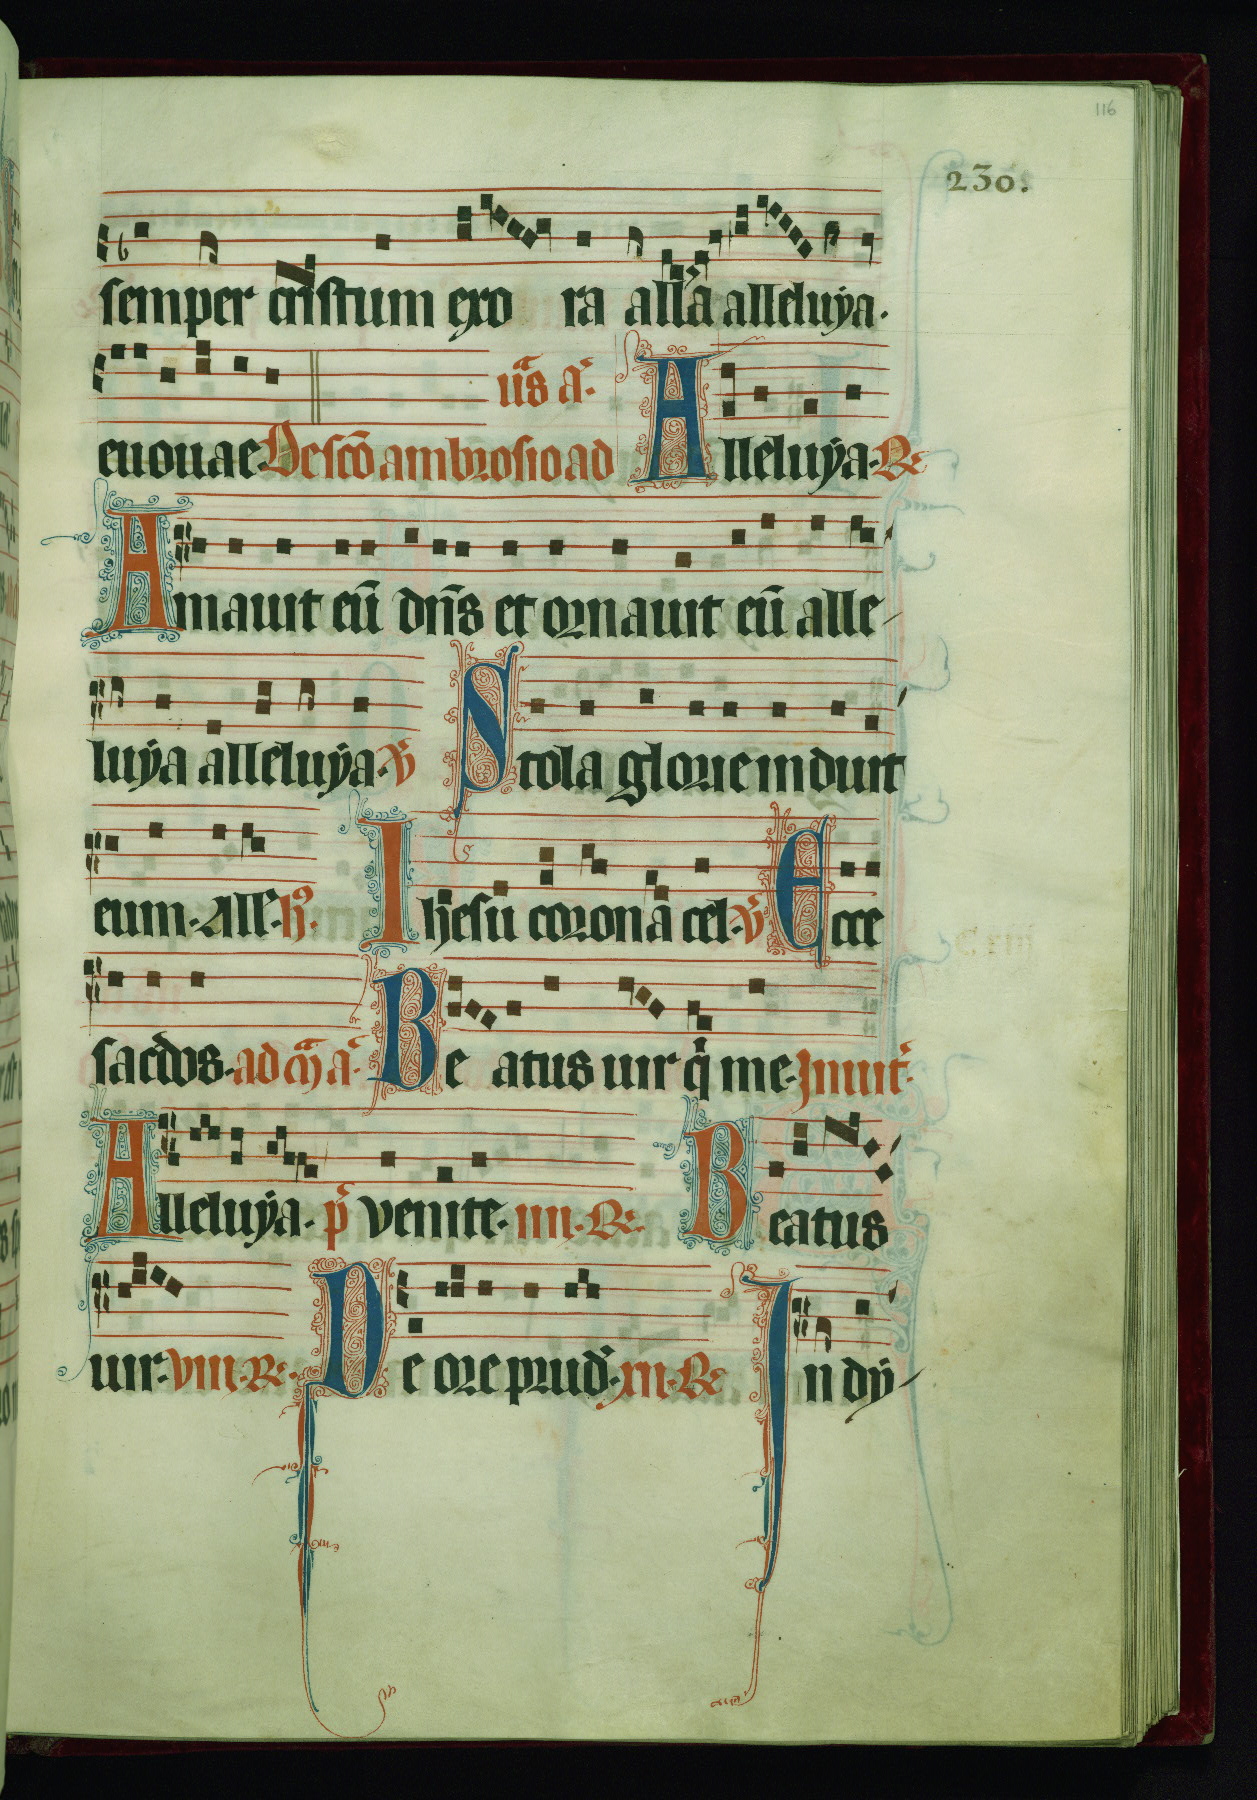 116
230.
semper cristum exo ra all'a alleluÿa.
euouae. De scō ambrosio ad uās ā. Alleluÿa. R.
Amauit eū dn̄s et ornauit eū alle-
luÿa alleluÿa. V Stola glorie induit
eum. All'. h. Ihesu corona cel. V Ecce
sacerdos. ad m̄ ā. Be atus uir q̄ me. Inuit.
Alleluÿa. p̄ venite. IIII. R. Beatus
uir. VIII. R. De ore prud. XII. R. In dÿ-